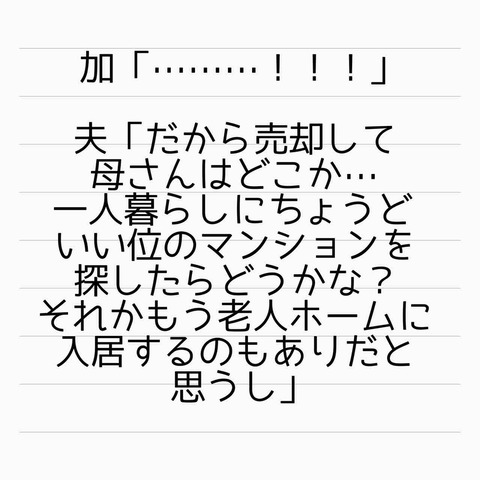 加「………！！！」
夫「だから売却して
母さんはどこか…
一人暮らしにちょうど
いい位のマンションを
探したらどうかな？
それかもう老人ホームに
入居するのもありだと
思うし」